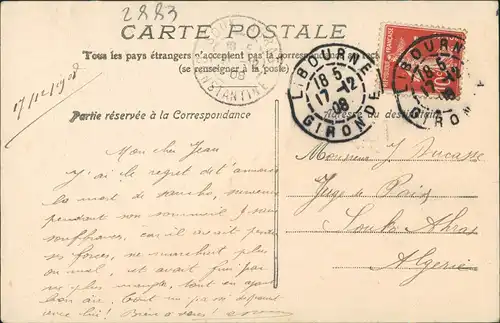 2883
CARTE POSTALE
Tous les pays étrangers n'acceptent pas la correspondance au recto
(se renseigner à la poste)
CONSTANTINE
08
LIBOURNE
18 5
17-12
08
GIRONDE
LIBOURNE
18 5
17-12
GIRONDE
10
17/12/1908
Partie réservée à la Correspondance
Adresse du destinataire
Mon cher Jean
J'ai le regret de t'annoncer
la mort de
pendant son sommeil & sans
souffrances, car il avait perdu
ses forces, ne marchait plus
ou mal, et avait fini par
ne plus manger, tout en ayant
bon air. Tout un passé disparait
avec lui! Bien à vous!
Monsieur J Ducasse
Juge de Paix
Souk Ahras
Algérie